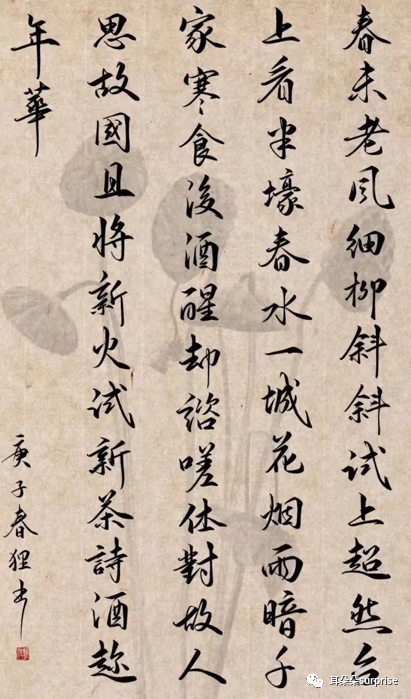 春未老風細柳斜斜試上超然台
上看半壕春水一城花烟雨暗千
家寒食後酒醒却諮嗟休對故人
思故國且將新火試新茶詩酒趁
年華
庚子春狸书
耳朵朵surprise